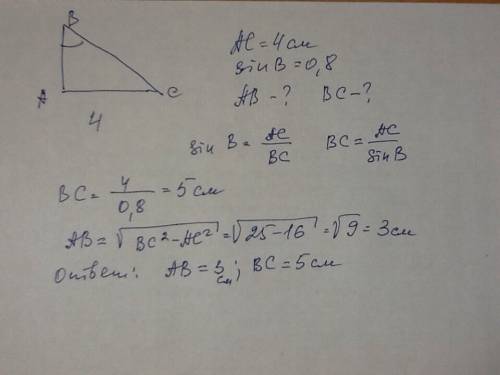 B
A C
4
AC = 4 см
sin B = 0,8
AB - ? BC - ?
sin B = AC/BC BC = AC/sin B
BC = 4/0,8 = 5 см
AB = √(BC² - AC²) = √(25 - 16) = √9 = 3 см
Ответ: AB = 3 см; BC = 5 см